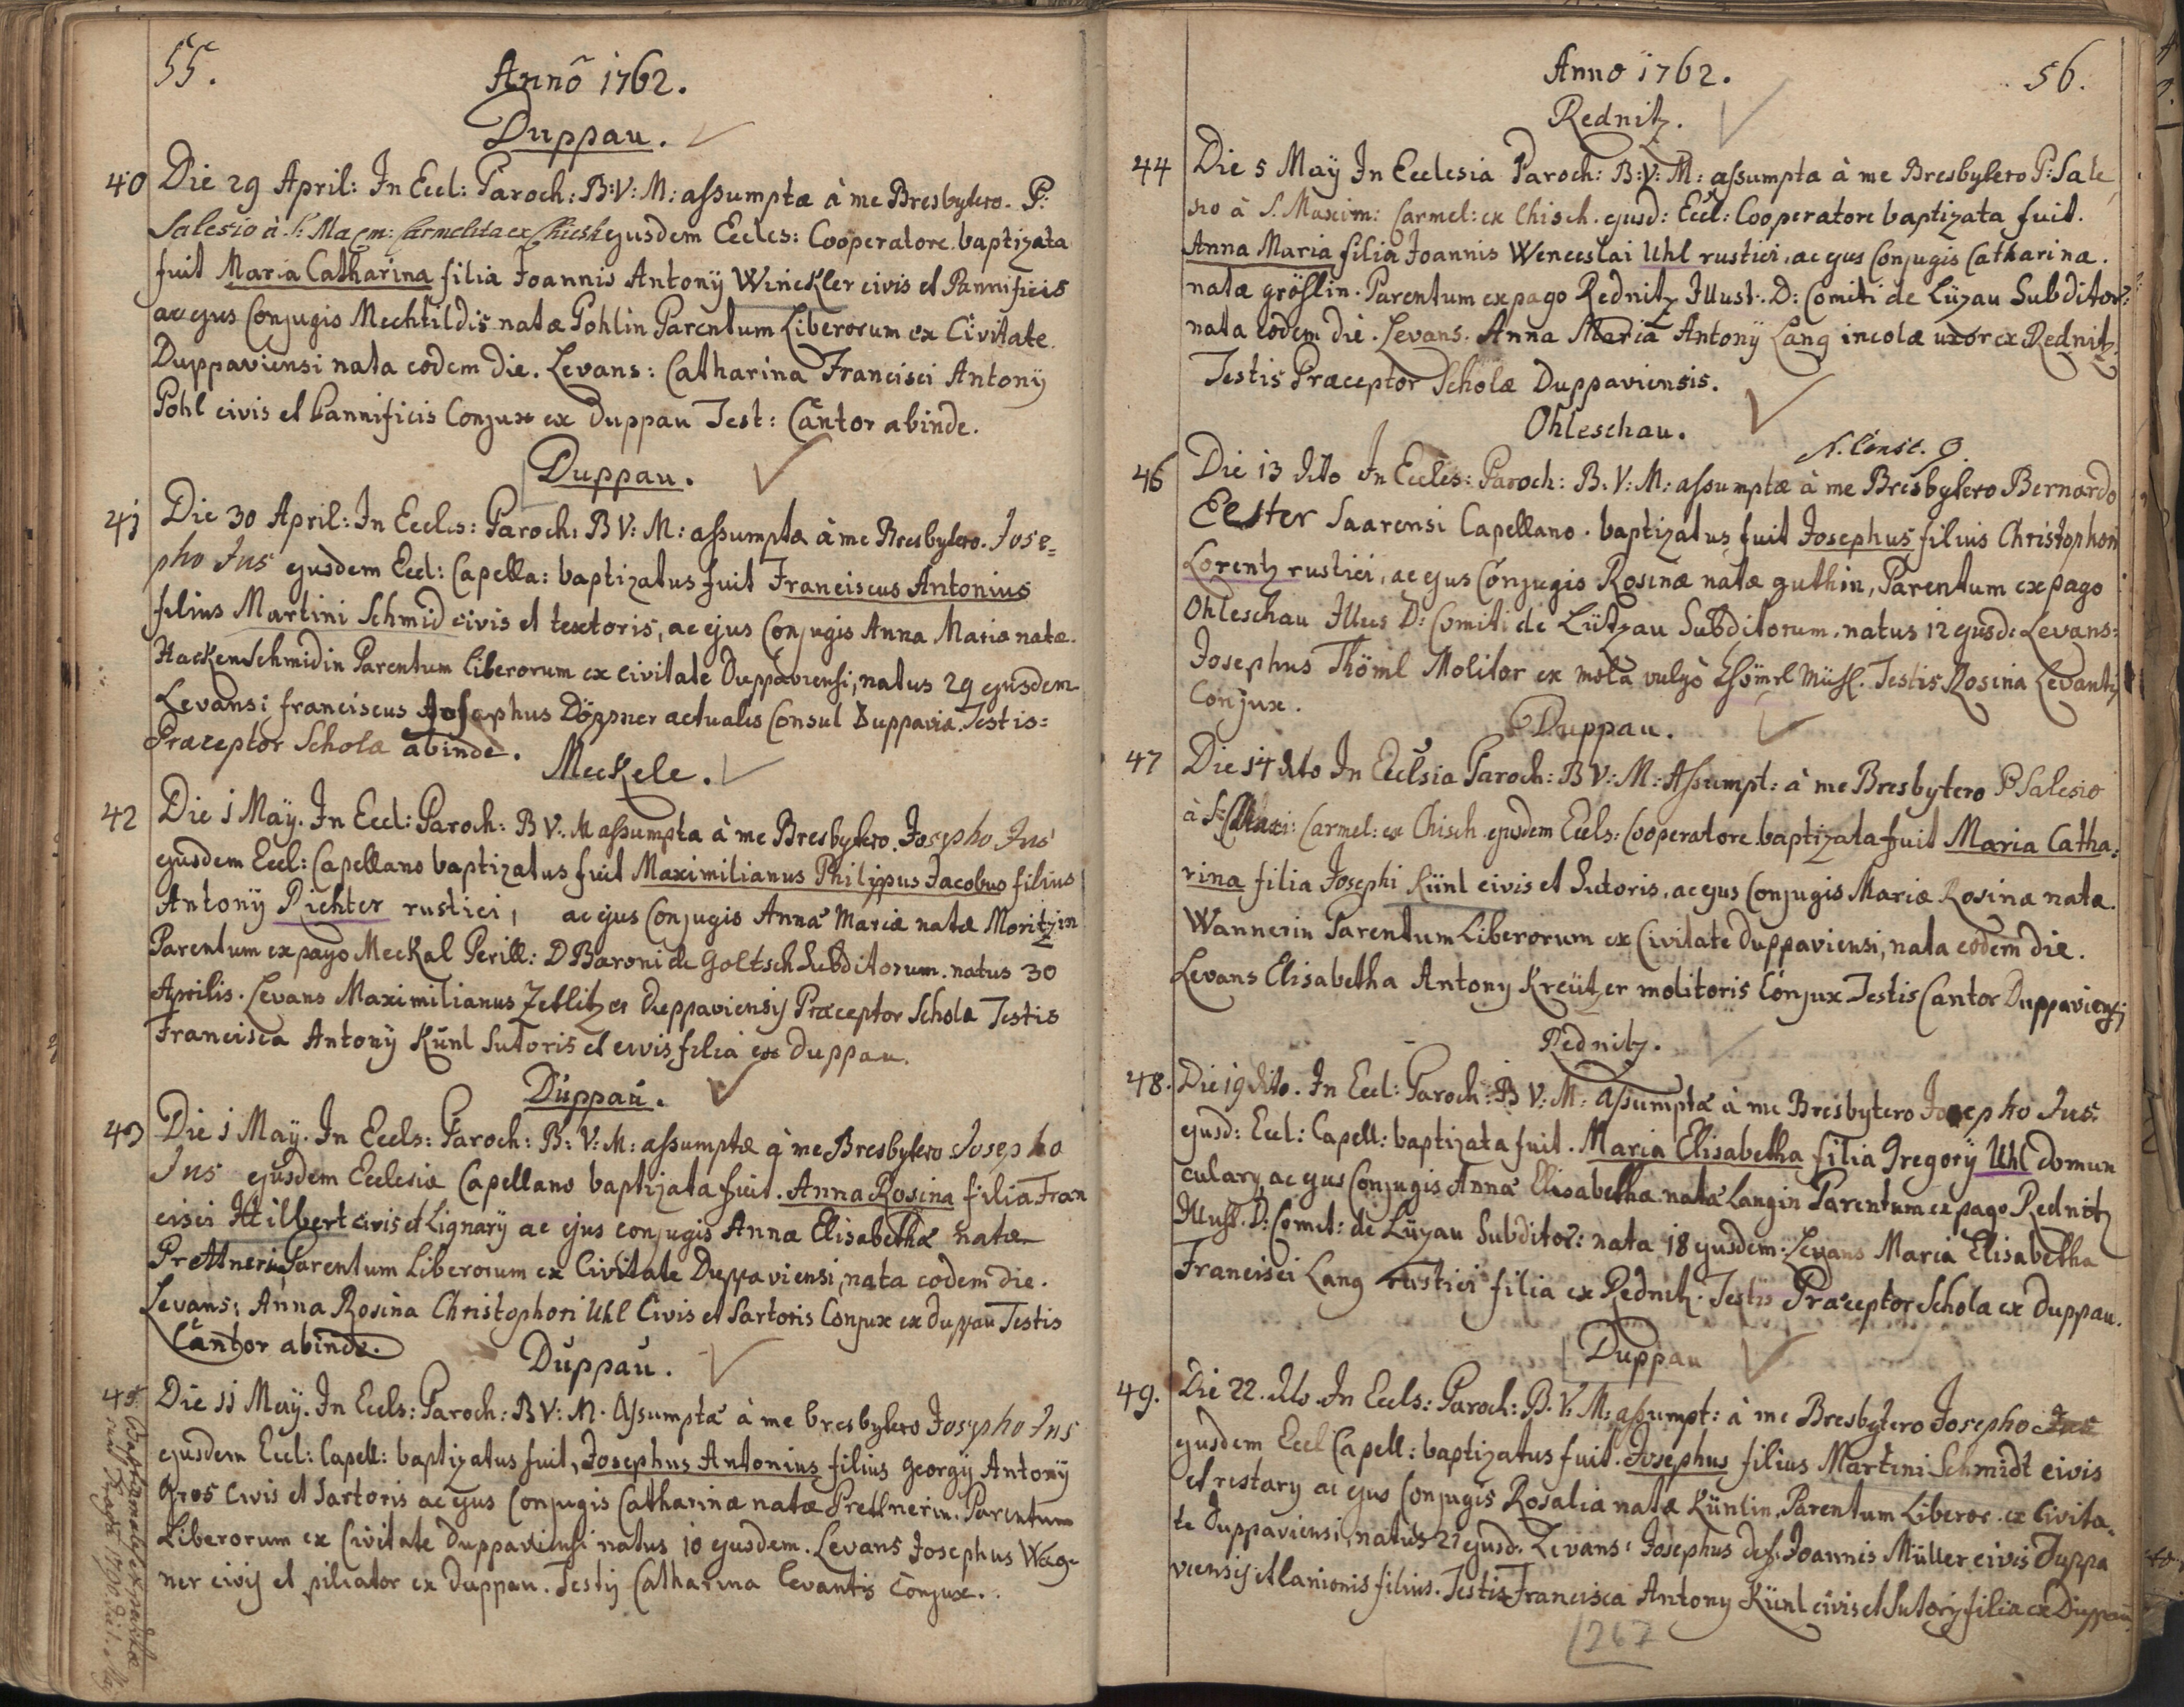 55.
Annô 1762.
Duppau.
40 Die 29 April: In Eccl: Paroch: B:V:M: assumptæ à me Presbytero. P:
Salesio à S: Maxm: Carmelita ex Chiesh ejusdem Eccles: Cooperatore baptizata
fuit Maria Catharina filia Joannis Antonÿ Winckler civis et Pannificis
ac ejus Conjugis Mechtildis natæ Pohlin Parentum Liberorum ex Civitate
Duppaviensi nata eodem die. Levans: Catharina Francisci Antonÿ
Pohl civis et Pannificis Conjux ex Duppau Test: Cantor abinde.
Duppau.
41 Die 30 April: In Eccles: Paroch: B V: M: assumptæ à me Presbytero. Jose=
pho Jus ejusdem Eccl: Capella: baptizatus fuit Franciscus Antonius
filius Martini Schmid civis et textoris, ac ejus Conjugis Anna Maria natæ
Hackenschmidin Parentum liberorum ex civitate Duppaviensi, natus 29 ejusdem
Levans: franciscus Josephus Döppner actualis Consul Duppavia. Testis=
Præceptor Scholæ abinde.
Meckele.
42 Die 1 Maÿ. In Eccl: Paroch: B V: M assumpta à me Presbytero. Josepho Jus
ejusdem Eccl: Capellano baptizatus fuit Maximilianus Philippus Jacobus filius
Antonÿ Richter rustici, ac ejus Conjugis Anna Mariæ natæ Moritzin
Parentum ex pago Meckal Perill: D Baroni de Goltsch Subditorum. natus 30
Aprilis. Levans Maximilianus Zettlitzer Duppaviensis Præceptor Schola Testis
Francisca Antonÿ Künl Sutoris et civis filia ex Duppau.
Duppau.
43 Die 1 Maÿ. In Eccls: Paroch: B: V: M: assumptæ à me Presbytero Josepho
Jus ejusdem Ecclesiæ Capellano baptizata fuit. Anna Rosina filia Fran
cisci Hilbert civis et Lignarÿ ac ejus conjugis Annæ Elisabethæ natæ
Prettnerin Parentum Liberorum ex Civitate Duppaviensi, nata eodem die.
Levans: Anna Rosina Christophori Uhl Civis et Sartoris Conjux ex Duppau Testis
Cantor abinde.
Duppau.
45 Die 11 Maÿ. In Eccls: Paroch: B V: M. Assumptæ à me Presbytero Josepho Jus
ejusdem Eccl: Capell: baptizatus fuit, Josephus Antonius filius Georgÿ Antonÿ
Gros Civis et Sartoris ac ejus Conjugis Catharinæ natæ Prettnerin. Parentum
Liberorum ex Civitate Duppaviensi natus 10 ejusdem. Levans Josephus Wag-
ner civis et pileator ex Duppau. Testis Catharina Levantis Conjux.
Anno 1762.
56.
Rednitz.
44 Die 5 Maÿ In Ecclesia Paroch: B:V: M: assumpta à me Presbytero P: Sale
sio à S. Maxim: Carmel: ex Chisch. ejusd: Eccl: Cooperatore baptizata fuit.
Anna Maria filia Joannis Wenceslai Uhl rustici, ac ejus Conjugis Catharina.
natæ grösslin. Parentum ex pago Rednitz Illust: D: Comiti de Lüzau Subditor:
nata eodem die. Levans. Anna Maria Antonÿ Lang incolæ uxor ex Rednitz
Testis Præceptor Scholæ Duppaviensis.
Ohleschau.
46 Die 13 dito In Eccles: Paroch: B. V: M: assumptæ à me Presbytero Bernardo
Elster Saarensi Capellano. baptizatus fuit Josephus filius Christophori
Lorentz rustici, ac ejus Conjugis Rosinæ natæ guthin, Parentum ex pago
Ohleschau Illus D: Comiti de Lützau Subditorum. natus 12 ejusd: Levans:
Josephus Thöml Molitor ex mola vulgò Thöml Mühl. Testis Rosina Levantis
Conjux.
Duppau.
47 Die 14 dito In Ecclsia Paroch: B V: M: Assumpt: à me Presbytero P Salesio
à S: Maxi: Carmel: ex Chisch ejusdem Eccls: Cooperatore baptizata fuit Maria Catha:
rina filia Josephi Künl civis et Sutoris, ac ejus Conjugis Mariæ Rosina nata.
Wannerin Parentum Liberorum ex Civitate Duppaviensi, nata eodem die.
Levans Elisabetha Antony Kreützer molitoris Conjux Testis Cantor Duppaviensis
Rednitz.
48. Die 19 dito. In Eccl: Paroch: B V: M: Assumptæ à me Presbytero Josepho Jus
ejusd: Eccl: Capell: baptizata fuit. Maria Elisabetha filia Gregorÿ Uhl domun
cularÿ ac ejus Conjugis Anna Elisabetha nata Langin Parentum ex pago Rednitz
Illuss. D: Comet: de Lüzau Subditor: nata 18 ejusdem: Levans Maria Elisabetha
Francisci Lang rustici filia ex Rednitz. Testis Præceptor Schola ex Duppau.
Duppau
49. Die 22. dito. In Eccls: Paroch: B. V: M: assumpt: à me Presbytero Josepho Jus
ejusdem Eccl Capell: baptizatus fuit. Josephus filius Martini Schmidt civis
et restary ac ejus Conjugis Rosalia natæ Künlin, Parentum Liberor. ex Civita-
te Duppaviensi, natus 21 ejusd. Levans: Josephus def. Joannis Müller civis Duppa
viensis et lanionis filius. Testis Francisca Antony Künl civis et Sutoris filia ex Duppau
1267